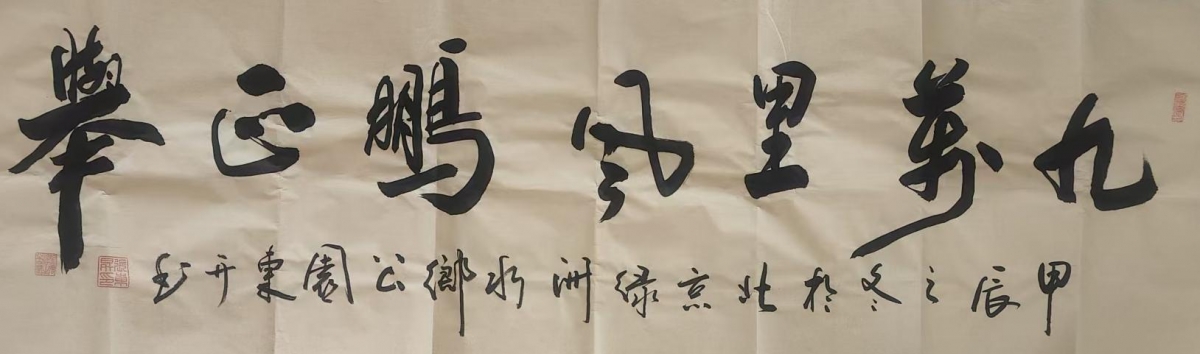 九萬里風鵬正舉
甲辰之冬於北京綠洲水鄉公園東升書